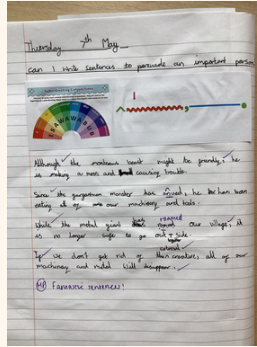 Thursday 7th May
can I write sentences to persuade an important person
I SAW A WABUB
Although the monstrous beast might be friendly, he
is making a mess and causing trouble.
Since the gargantuan monster has arrived, he has been
eating all of our machinery and tools.
While the metal giant roamed our village, it
is no longer safe to go outside
If we don't get rid of this creature, all of our
machinery and metal will disappear.
Fantastic sentences!